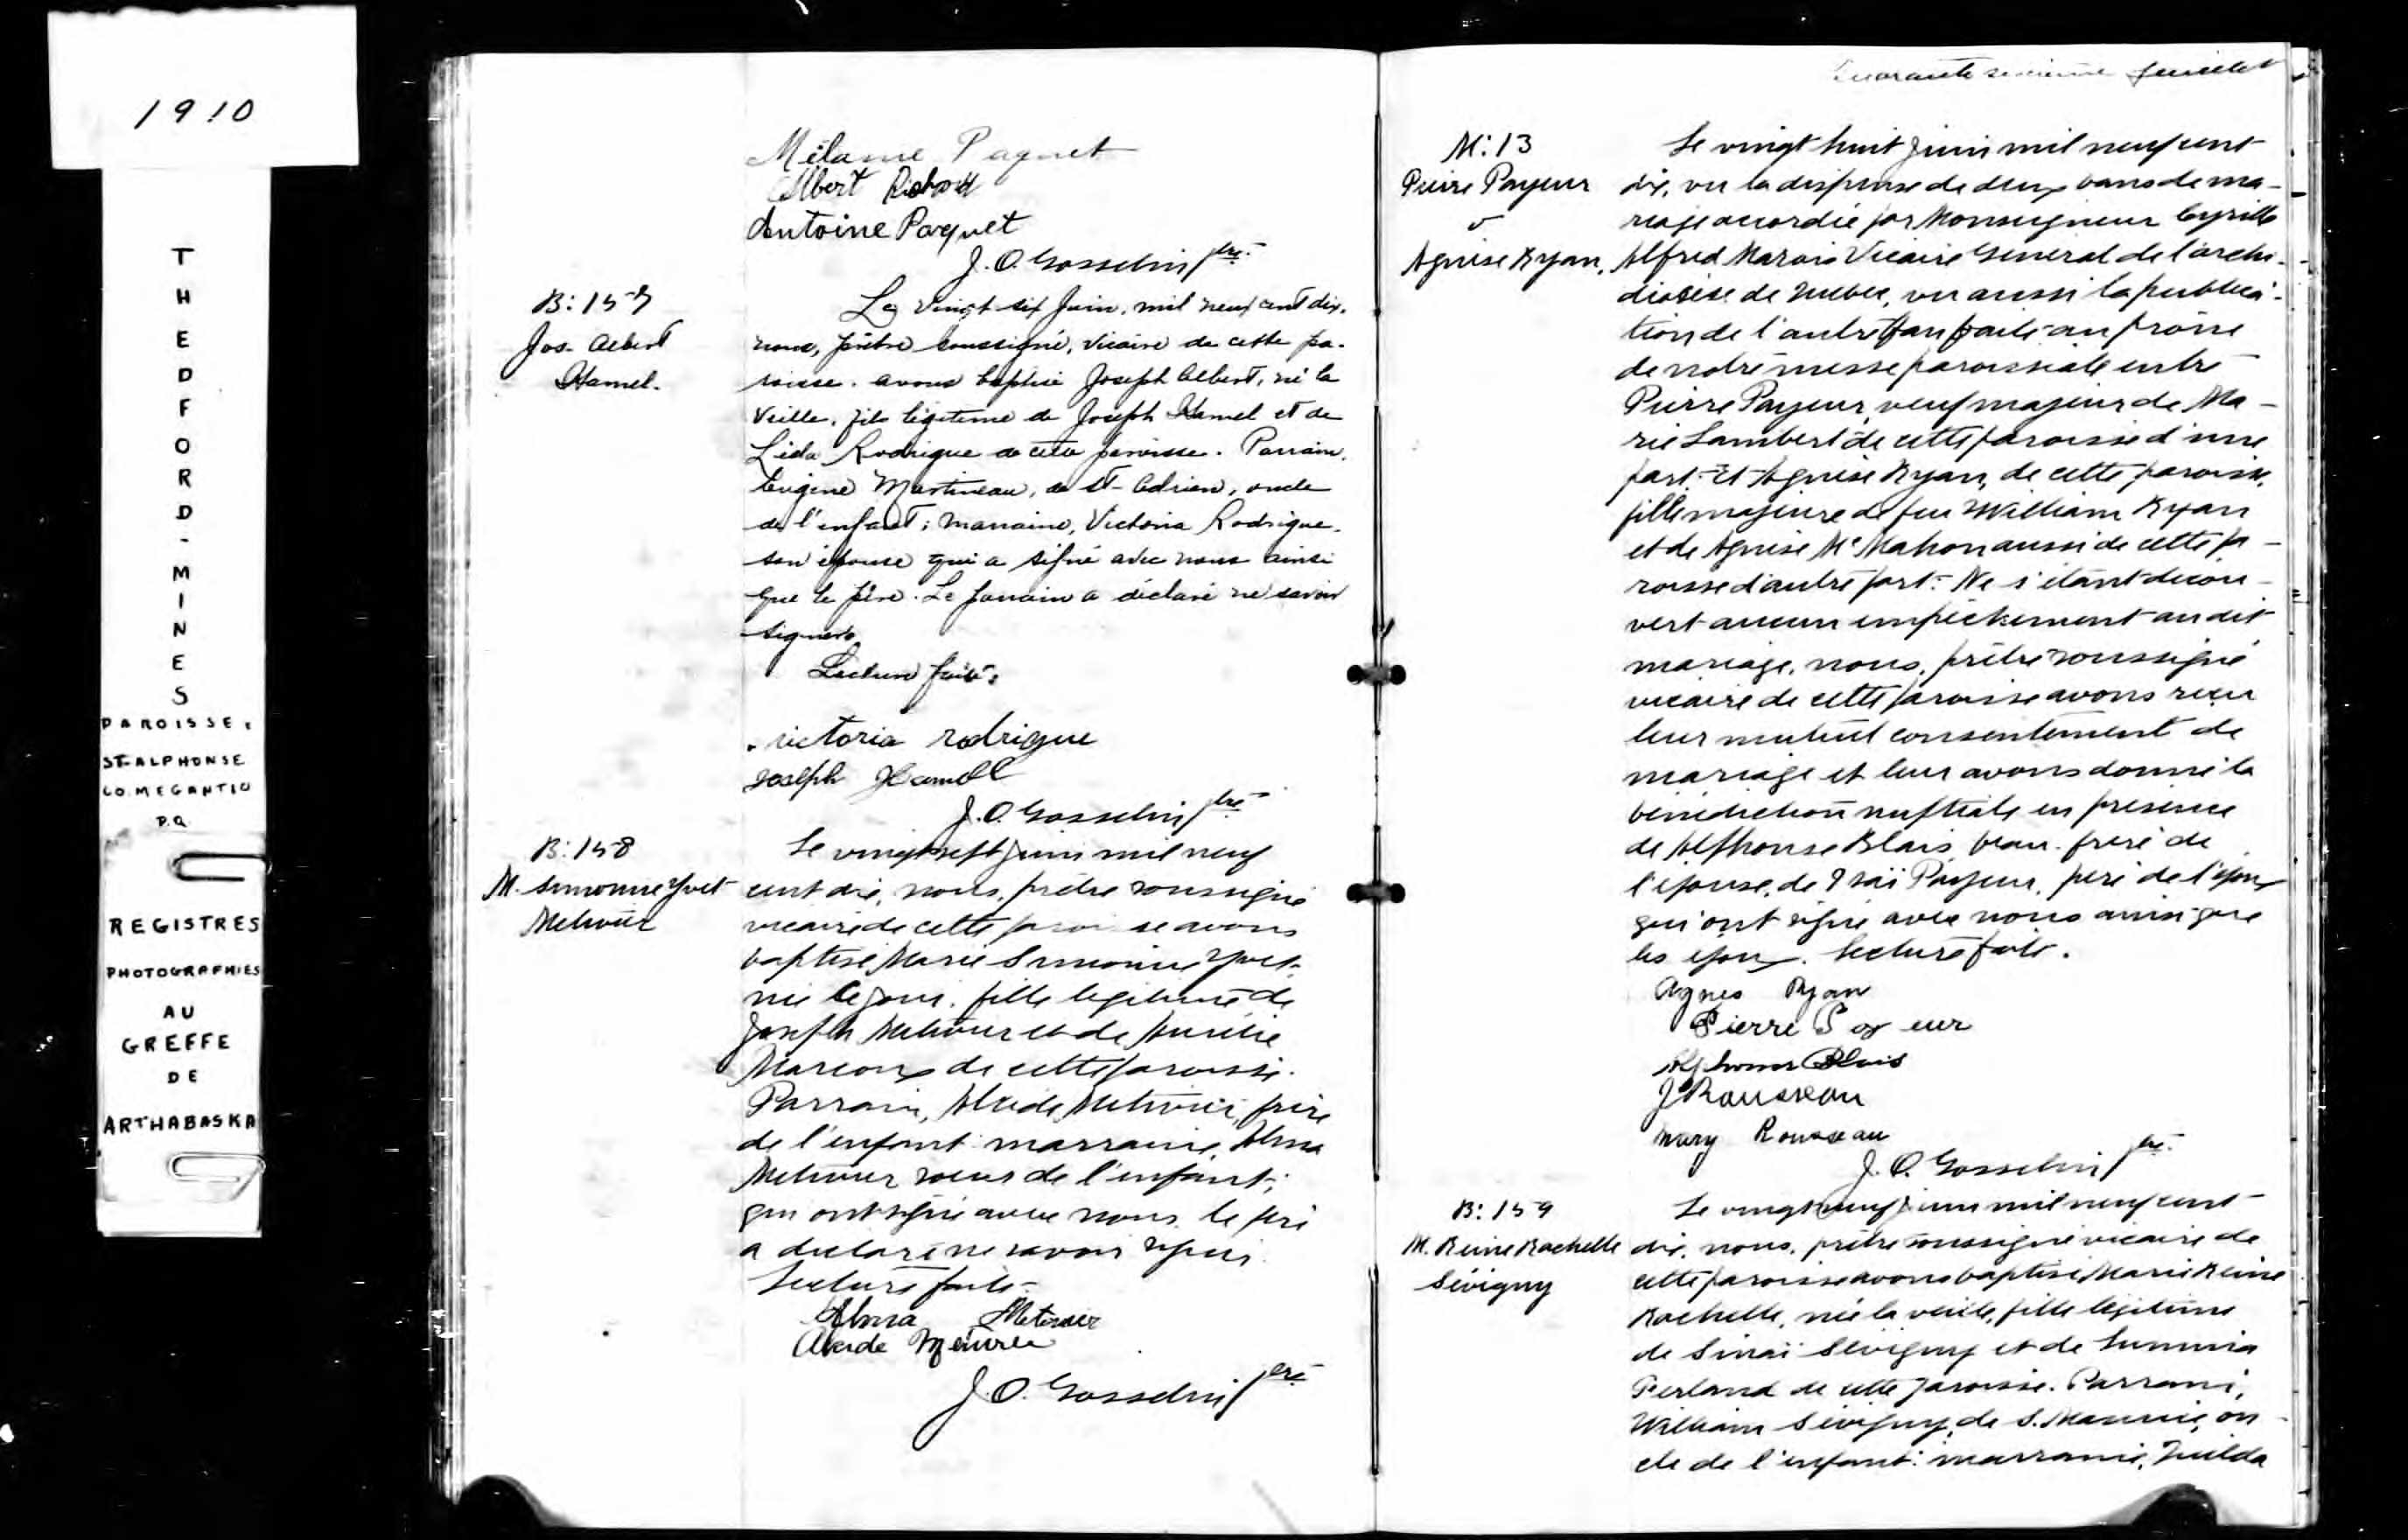 1910
THEDFORD-MINES
PAROISSE:
ST-ALPHONSE
CO. MEGANTIC
P.Q.
REGISTRES
PHOTOGRAPHIES
AU
GREFFE
DE
ARTHABASKA
Mélanie Paquet
Albert
Antoine Paquet
J. O. Gosselin ptre
B: 157
Jos. Albert
Hamel.
Le vingt-six Juin, mil neuf cent dix,
nous, prêtre soussigné, vicaire de cette pa-
roisse, avons baptisé Joseph Albert, né la
veille, fils légitime de Joseph Hamel et de
Lida Rodrigue de cette paroisse. Parrain,
Eugène Martineau, de St-Adrien, oncle
de l'enfant; marraine, Victoria Rodrigue,
son épouse qui a signé avec nous ainsi
que le père. Le parrain a déclaré ne savoir
signer.
Lecture faite.
victoria rodrigue
Joseph Hamell
J. O. Gosselin ptre
B: 158
M. Simonne Yvet
Metivier
Le vingt sept juin mil neuf
cent dix, nous, prêtre soussigné
vicaire de cette paroisse avons
baptisé Marie Simonne Yvet
née ce jour, fille legitime de
Joseph Metivier et de Aurélie
Marcoux de cette paroisse.
Parrain, Alcide Metivier, frère
de l'enfant: marraine, Alma
Metivier soeur de l'enfant;
qui ont signé avec nous, le père
a declaré ne savoir signer.
Lecture faite.
Alma Metivier
Alcide
J. O. Gosselin ptre
Quarante feuillet
M: 13
Pierre Payeur
Agnèse Ryan,
Le vingt huit juin mil neuf cent
dix, vu la dispense de deux bans de ma-
riage accordée par Monseigneur Cyrille
Alfred Marois Vicaire Général de l'archi-
diocèse de Quebec, vu aussi la publica-
tion de l'autre ban faite au prône
de notre messe paroissiale entre
Pierre Payeur, veuf majeur de Ma-
rie Lambert de cette paroisse d'une
part. Et Agnèse Ryan, de cette paroisse,
fille majeure de feu William Ryan
et de Agnèse McMahon aussi de cette pa-
roisse d'autre part. Ne s'étant décou-
vert aucun empêchement au dit
mariage, nous, prêtre soussigné
vicaire de cette paroisse avons reçu
leur mutuel consentement de
mariage et leur avons donné la
bénédiction nuptiale en présence
de Alphonse Blais, beau-frère de
l'épouse, de Payeur, père de l'époux
qui ont signé avec nous ainsi que
les époux. Lecture faite.
Agnes Ryan
Pierre Payeur
Alphonse Blais
J Rousseau
Mary Rousseau
J. O. Gosselin ptre
B: 159
M. Reine Rachelle
Sévigny
Le vingt neuf juin mil neuf cent
dix, nous, prêtre soussigné vicaire de
cette paroisse avons baptisé Marie Reine
Rachelle, née la veille, fille légitime
de Sinaï Sévigny et de
Ferland de cette paroisse. Parrain,
William Sévigny, de S. Maurice, on-
cle de l'enfant: marraine,